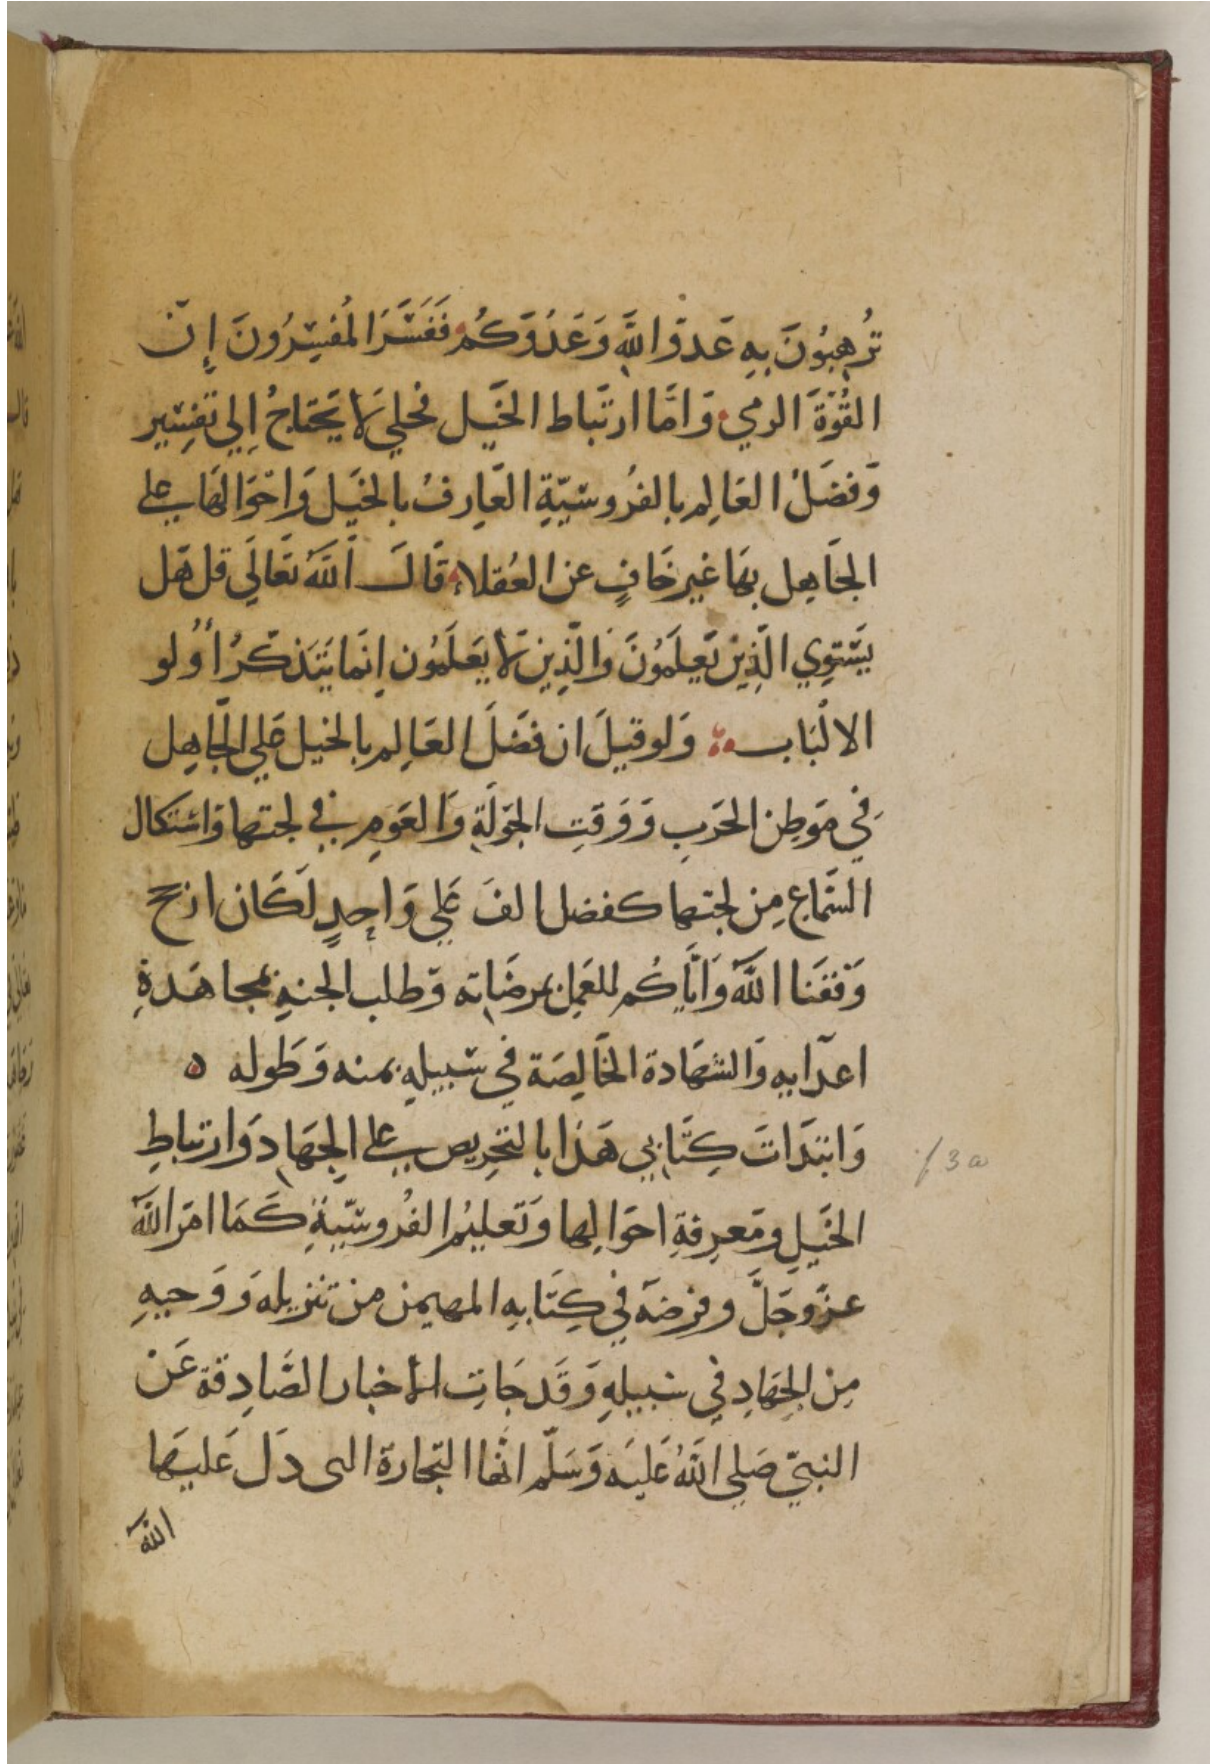 تُرهِبُونَ بِهِ عَدوَّ اللَّهِ وَعَدُوَّكُم فَفَسَّرَ المُفسِّرُونَ إِنّ
القُوَّةَ الرمي وَامَّا ارتَباط الخَيل فجلي لَا يَحتَاجُ اِلي تفسِير
وَفضَلُ العَالِم بالفرُوسيّةِ العَارِفُ بالخيَل وَاحْوَالهَا علي
الجَاهِل بهَا غير خَافٍ عن العُقلاء قَالَ اللَّهُ تَعَالَي قل هَل
يَستَوِي الَّذِينَ يَعلَمُونَ وَالَّذِينَ لَا يَعلَمُون اِنمَا يَتَذكّرُ أُولو
الالْبَاب وَلو قيلَ ان فضَلَ العَالِم بالخيل عَلي الجَاهِل
فِي مَوطِن الحَربِ وَوَقتِ الجَولَةِ وَالعَومِ في لجتها وَاستكال
السَّماع مِن لجتها كفضل الفَ عَلي وَاحِدٍ لَكَان ارجح
وَفقَنا اللَّهُ وَايَّاكُم للعَمِل بمرضَاته وَطلب الجنهِ بمجاهَدةِ
اعدَايهِ وَالشهَادة الخَالِصَة فيِ سَبيلهِ بمنه وَطَوله ه
وَابتدَاتَ كِتَابي هَذا بالتحرِيصِ علي الجِهَادِ وَارتباطِ
الخَيلِ ومَعرِفةِ احوَالها وَتَعليُم الفُروسّيةِ كَمَا امَر اللَّهَ
عزَّوجَلَّ وفرضهَ فيِ كِتَابهِ المهيمن من تنزيله وَوَحيهِ
مِن الجِهَادِ فِي سَبيلهِ وَقَد جَاتِ الأخبار الصَّادِقة عَن
النبيّ صَلي اللَّهُ عَليَه وَسَلّم انَّها التجارة التى دَل عَليهَا
اللهَ
f 3a